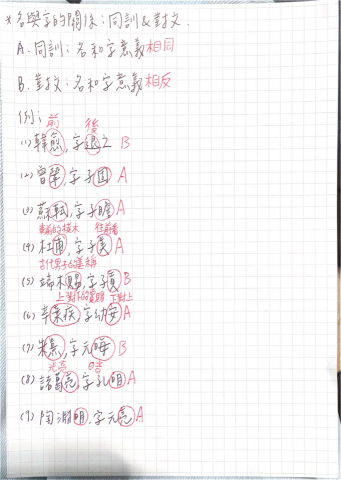 *名與字的關係：同訓&對文.
A.同訓：名和字意義相同
B.對文：名和字意義相反
例：
前 後
(1)韓愈,字退之 B
(2)曾鞏,字子固 A
(3)蘇軾,字子瞻 A
車前的橫木 往前看
(4)杜甫,字子美 A
古代男子的美稱
(5)端木賜,字子貢 B
上對下的賞賜 下對上
(6)辛棄疾,字幼安 A
(7)朱熹,字元晦 B
光亮 日暗
(8)諸葛亮,字孔明 A
(9)陶淵明,字元亮 A